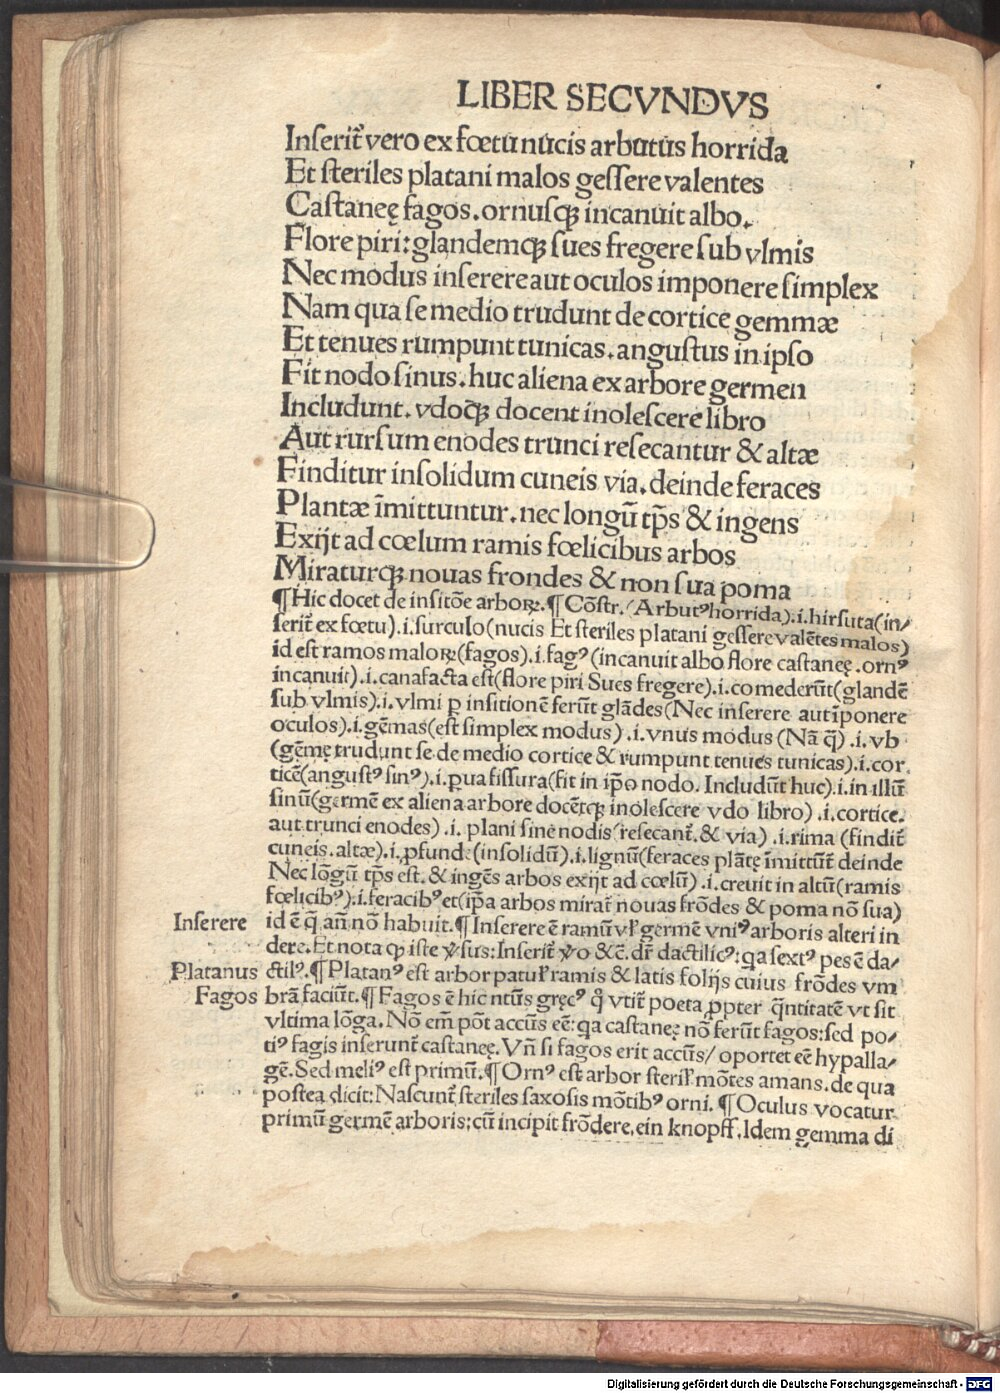 LIBER SECVNDVS
Inſerit᷑ vero ex fœtu nucis arbutus horrida
Et ſteriles platani malos geſſere valentes
Caſtaneę fagos. ornuſqꝫ incanuit albo.
Flore piri: glandemqꝫ ſues fregere ſub vlmis
Nec modus inſerere aut oculos imponere ſimplex
Nam qua ſe medio trudunt de cortice gemmæ
Et tenues rumpunt tunicas. anguſtus in ipſo
Fit nodo ſinus. huc aliena ex arbore germen
Includunt. vdoqꝫ docent inoleſcere libro
Aut rurſum enodes trunci reſecantur & altæ
Finditur inſolidum cuneis via. deinde feraces
Plantæ īmittuntur. nec longū tp̄s & ingens
Exijt ad cœlum ramis fœlicibus arbos
Miraturqꝫ nouas frondes & non ſua poma
¶Hic docet de inſitōe arboꝝ. ¶Cōſtr. (Arbutꝰ horrida) .i. hirſuta (in/
ſerit᷑ ex fœtu) .i. ſurculo (nucis Et ſteriles platani geſſere valētes malos)
id eſt ramos maloꝝ (fagos) .i. fagꝰ (incanuit albo flore caſtaneę. ornꝰ
incanuit) .i. canafacta eſt (flore piri Sues fregere) .i. comederūt (glandē
ſub vlmis) .i. vlmi ꝑ inſitionē ferūt glādes (Nec inſerere aut īponere
oculos) .i. gēmas (eſt ſimplex modus) .i. vnus modus (Nā q̄) .i. vb
(gēmę trudunt ſe de medio cortice & rumpunt tenues tunicas) .i. cor.
ticē (anguſtꝰ ſinꝰ) .i. ꝑua fiſſura (fit in ip̄o nodo. Includūt huc) .i. in illū
ſinū (germē ex aliena arbore docētqꝫ inoleſcere vdo libro) .i. cortice.
aut trunci enodes) .i. plani ſine nodis (reſecant᷑. & via) .i. rima (findit᷑
cuneis. altæ) .i. ꝓfunde (inſolidū) .i. lignū (feraces plātę īmittūt᷑ deinde
Nec lōgū tp̄s eſt. & ingēs arbos exijt ad cœlū) .i. creuit in altū (ramis
fœlicibꝰ) .i. feracibꝰ et (ip̄a arbos mirat᷑ nouas frōdes & poma nō ſua)
Inſerere id ē q̄ an̄ nō habuit. ¶Inſerere ē ramū vľ germē vniꝰ arboris alteri in
dere. Et nota ꝙ iſte v̓ſus: Inſerit᷑ v̓o &c̄. dr̄ dactilicꝰ: qa ſextꝰ pes ē da/
Platanus ctilꝰ. ¶Platanꝰ eſt arbor patuľ ramis & latis folijs cuius frōdes vm
Fagos brā faciūt. ¶Fagos ē hic ntūs gręcꝰ q̊ vtit᷑ poeta ꝓpter q̄ntitatē vt ſit
vltima lōga. Nō em̄ pōt accūs eē: qa caſtaneę nō ferūt fagos: ſed po/
tiꝰ fagis inſerunt᷑ caſtaneę. Vn̄ ſi fagos erit accūs/ oportet eē hypalla/
gē. Sed meliꝰ eſt primū. ¶Ornꝰ eſt arbor ſteriľ mōtes amans. de qua
poſtea dicit: Naſcunt᷑ ſteriles ſaxoſis mōtibꝰ orni. ¶Oculus vocatur
primū germē arboris: cū incipit frōdere, ein knopff. Idem gemma di
Digitalisierung gefördert durch die Deutsche Forschungsgemeinschaft - DFG